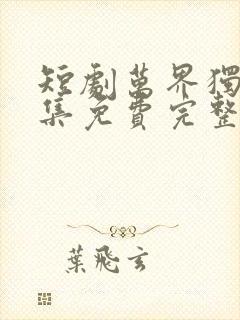 短劇萬界獨
集免費完整
葉飛玄